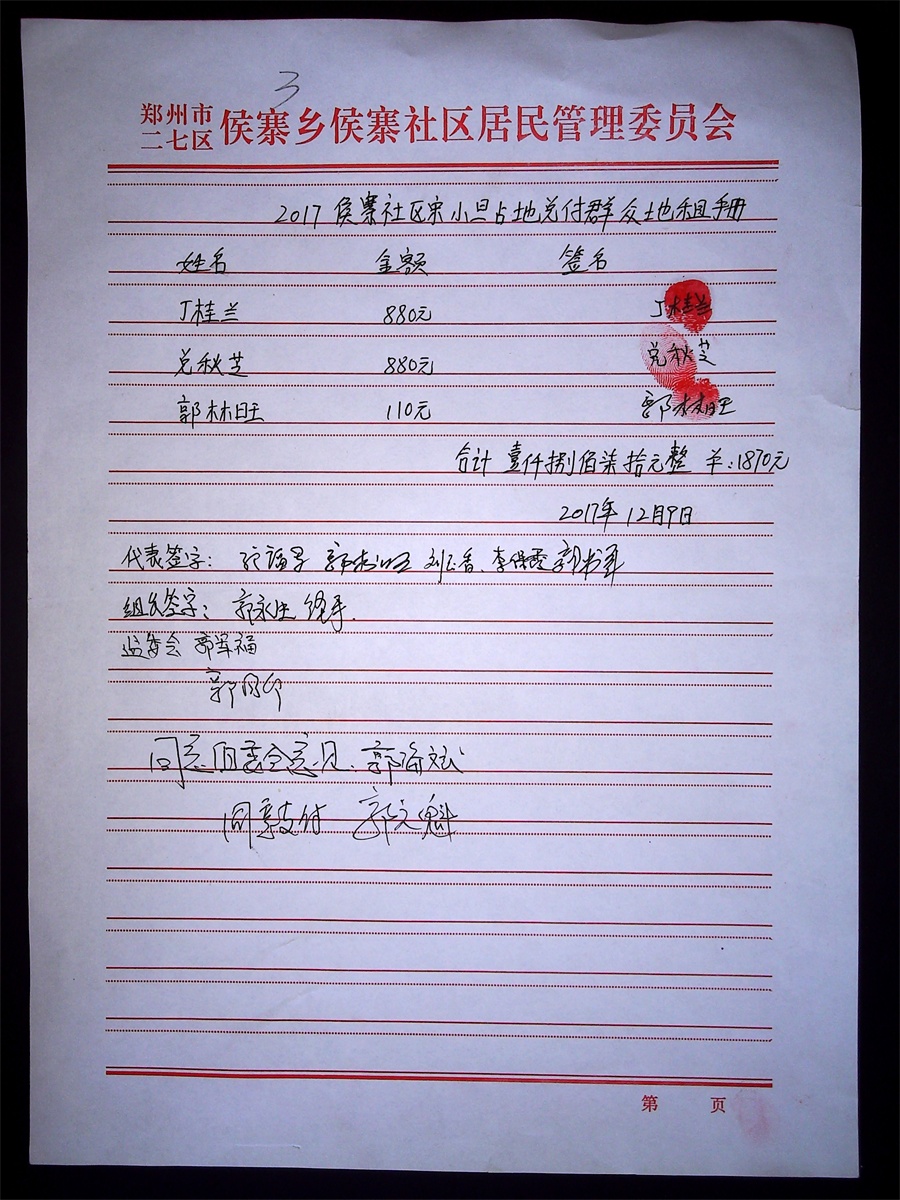 3
郑州市二七区侯寨乡侯寨社区居民管理委员会
2017侯寨社区宋小旦占地兑付群众地租手册
姓名 金额 签名
丁桂兰 880元 丁桂兰
兑秋芝 880元 兑秋芝
郭林旺 110元 郭林旺
合计 壹仟捌佰柒拾元整 ¥:1870元
2017年12月9日
代表签字: 郭林旺 李保霞
组长签字: 郭永生
监委会 郭军福
郭同印
同意 郭海斌
同意支付 郭元魁
第 页